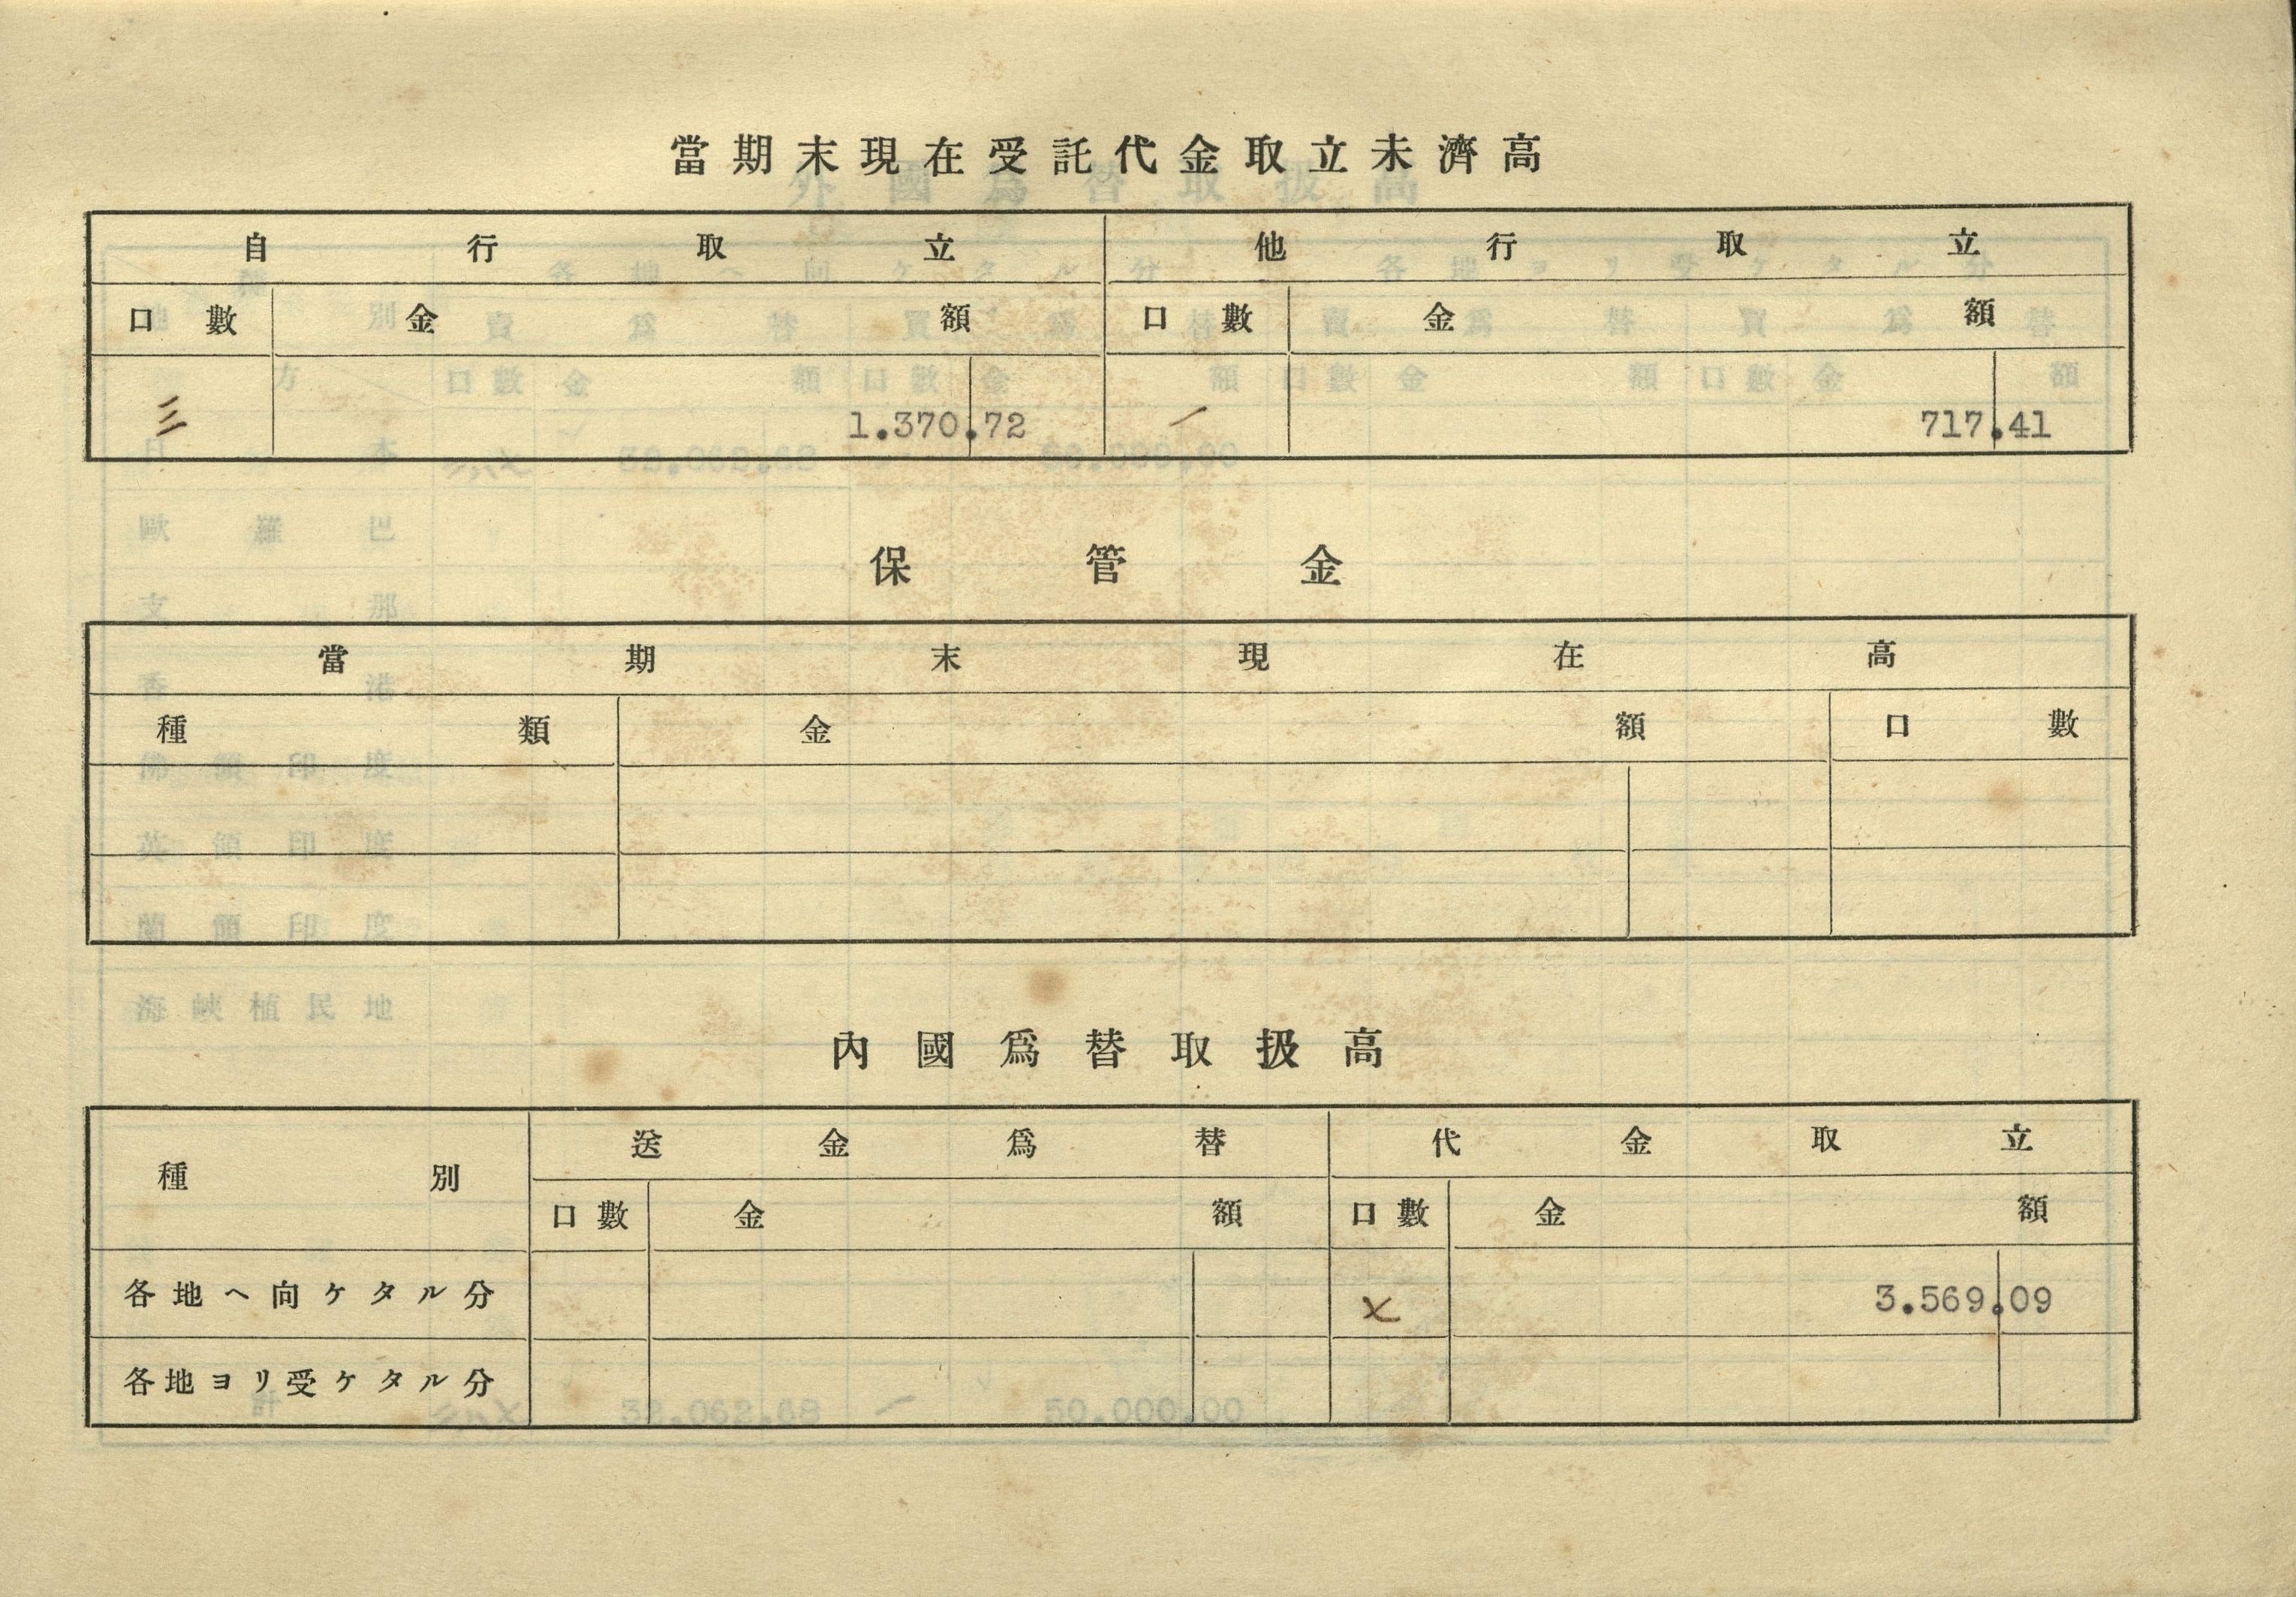 當期末現在受託代金取立未濟高
自行取立 他行取立
口數 金額 口數 金額
三 1.370.72 一 717.41
保管金
當期末現在高
種類 金額 口數
內國爲替取扱高
種別 送金爲替 代金取立
口數 金額 口數 金額
各地ヘ向ケタル分 3.569.09
各地ヨリ受ケタル分